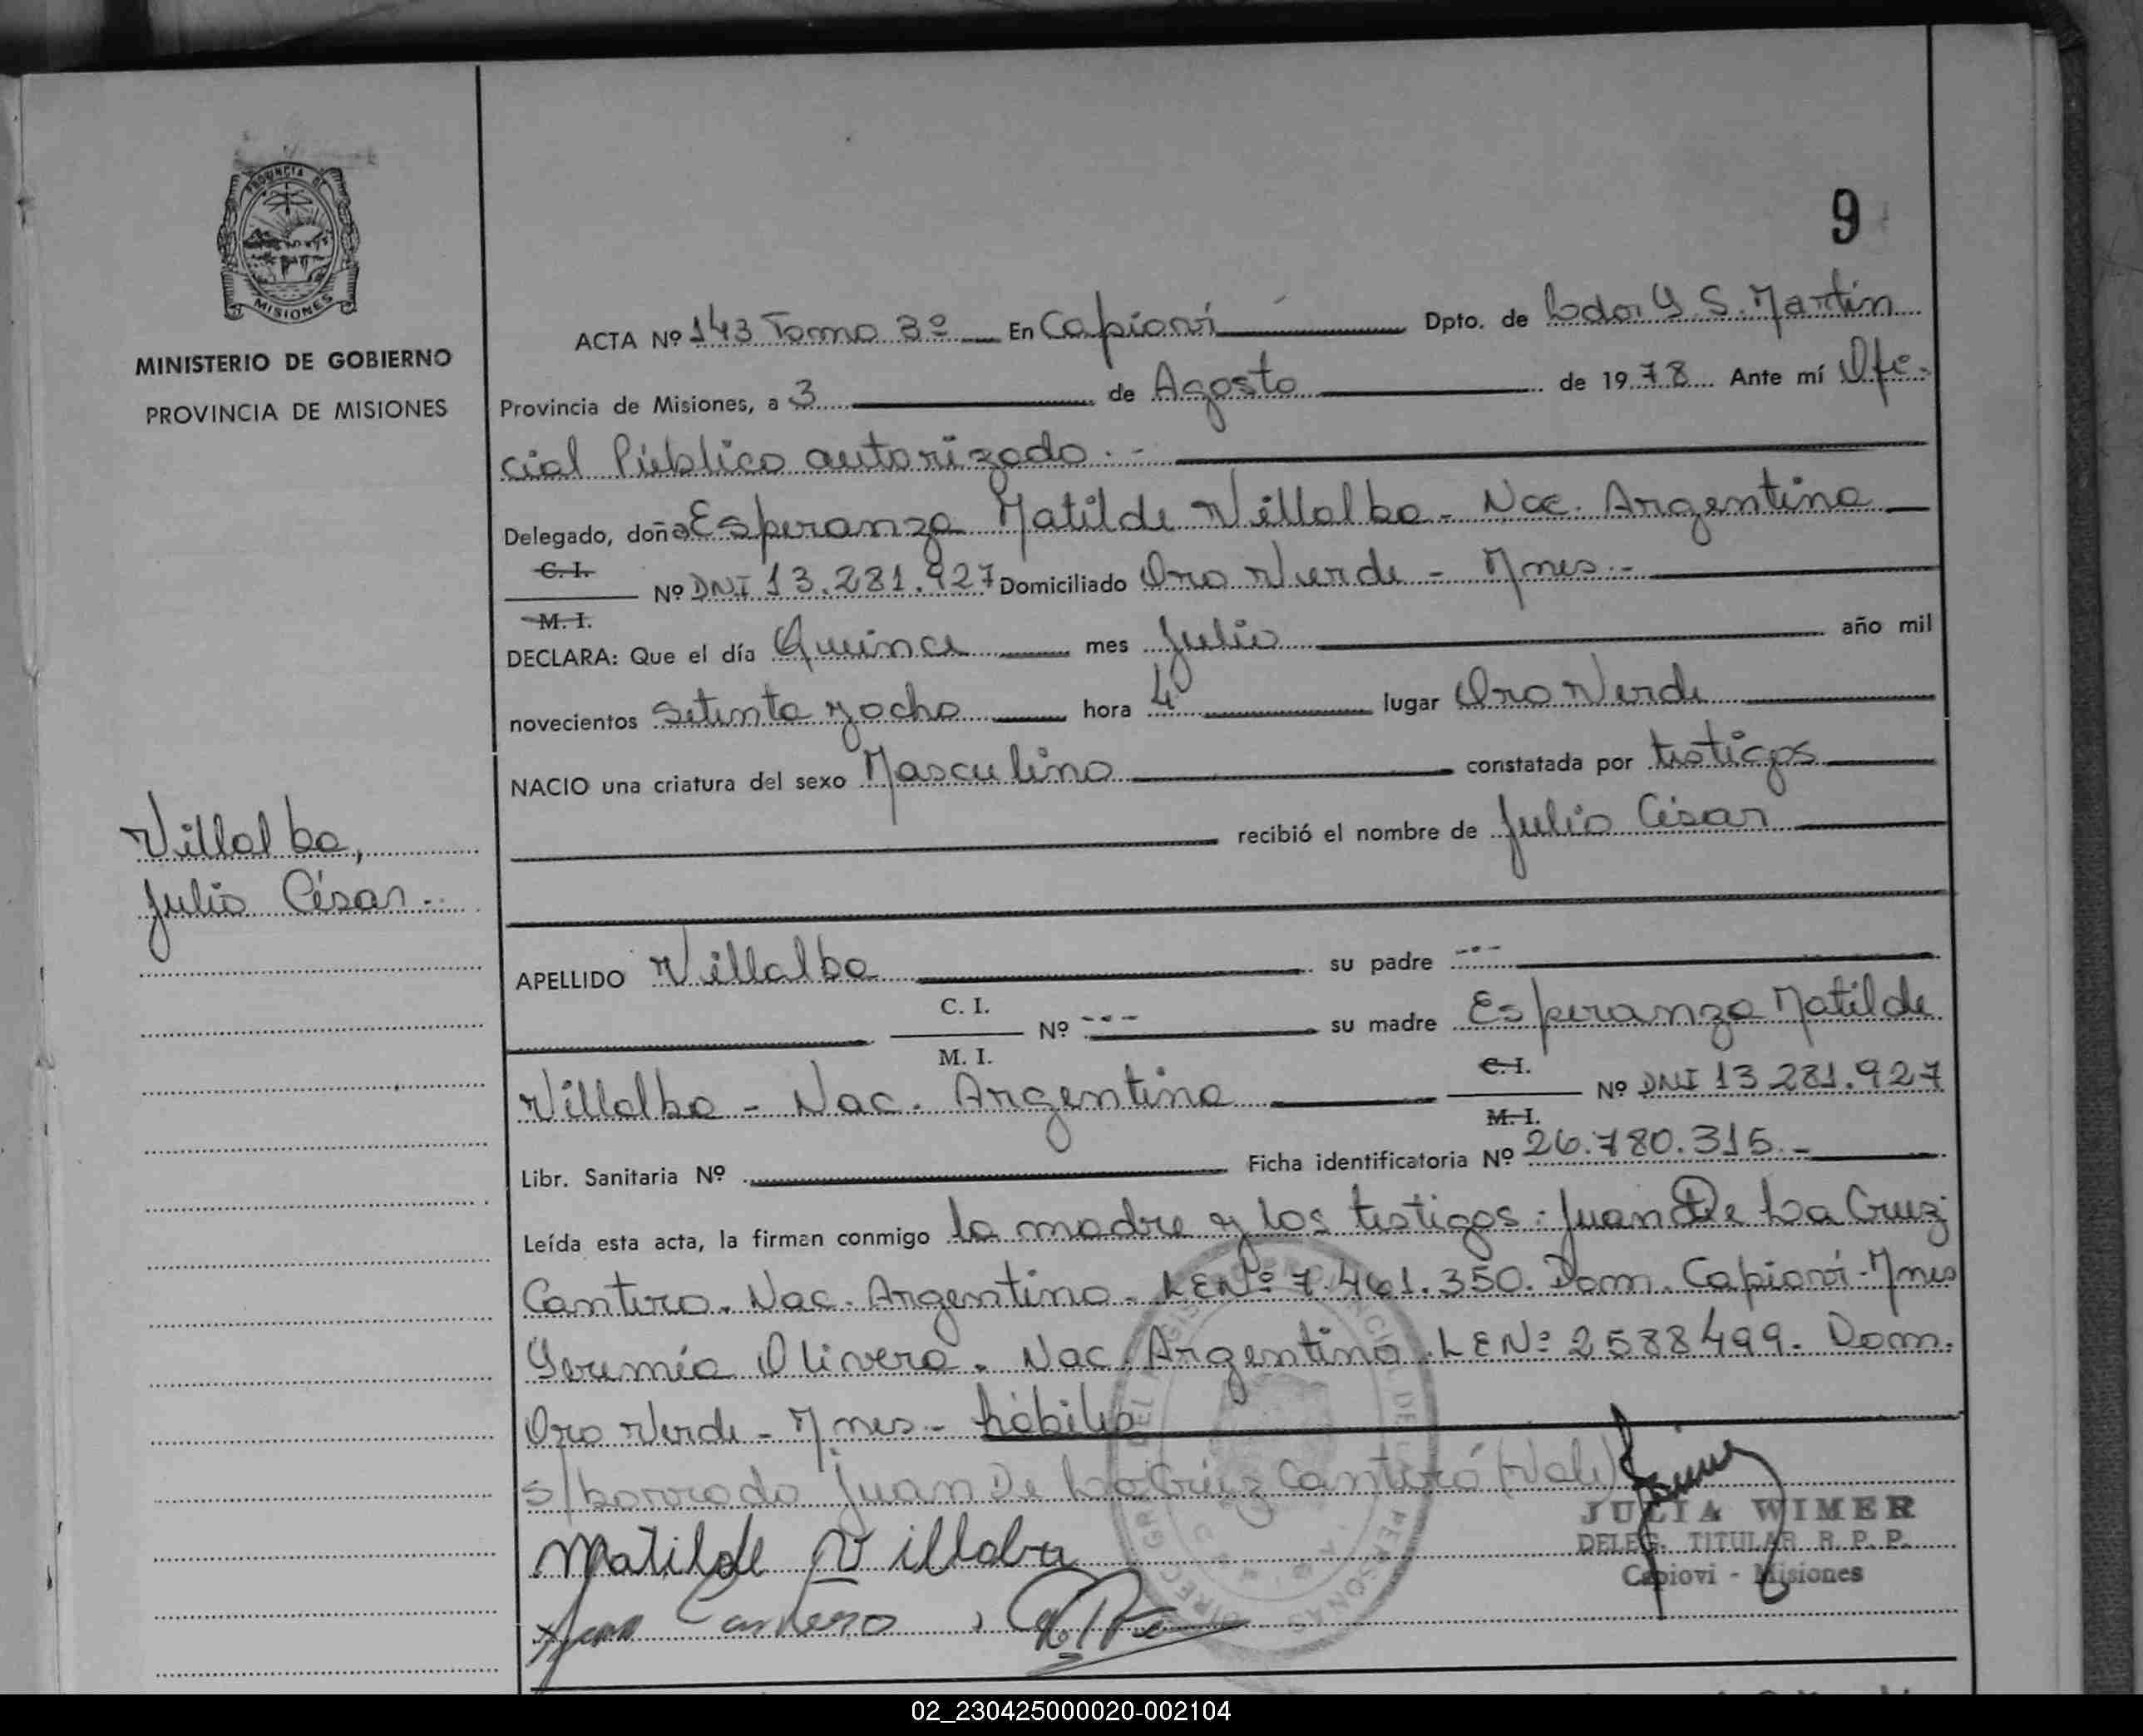 9
PROVINCIA DE
MISIONES
MINISTERIO DE GOBIERNO
PROVINCIA DE MISIONES
ACTA Nº 143 Tomo 3º En Capioví Dpto. de Ldor G. S. Martín
Provincia de Misiones, a 3 de Agosto de 1978 Ante mí Ofi-
cial Público autorizado.-
Delegado, doña Esperanza Matilde Villalba - Nac. Argentina
C. I.
Nº DNI 13.281.927 Domiciliado Oro Verde - Mnes.-
M. I.
DECLARA: Que el día Quince mes Julio año mil
novecientos setenta y ocho hora 4 lugar Oro Verde
NACIO una criatura del sexo Masculino constatada por testigos
recibió el nombre de Julio César
Villalba,
Julio César.-
APELLIDO Villalba su padre ---
C. I.
Nº --- su madre Esperanza Matilde
M. I.
Villalba - Nac. Argentina C. I. Nº DNI 13.281.927
M. I.
Libr. Sanitaria Nº Ficha identificatoria Nº 26.780.315.-
Leída esta acta, la firman conmigo la madre y los testigos: Juan De La Cruz
Cantero. Nac. Argentino. LENº 7.461.350. Dom. Capioví-Mnes
Geremía Olivera. Nac. Argentino. LENº 2588499. Dom.
Oro Verde - Mnes.- hábiles
s/borrado Juan De La Cruz Cantero (Vale)
JULIA WIMER
Matilde Villalba
DELEG. TITULAR R. P. P.
Capiovi - Misiones
Juan Cantero
02_230425000020-002104